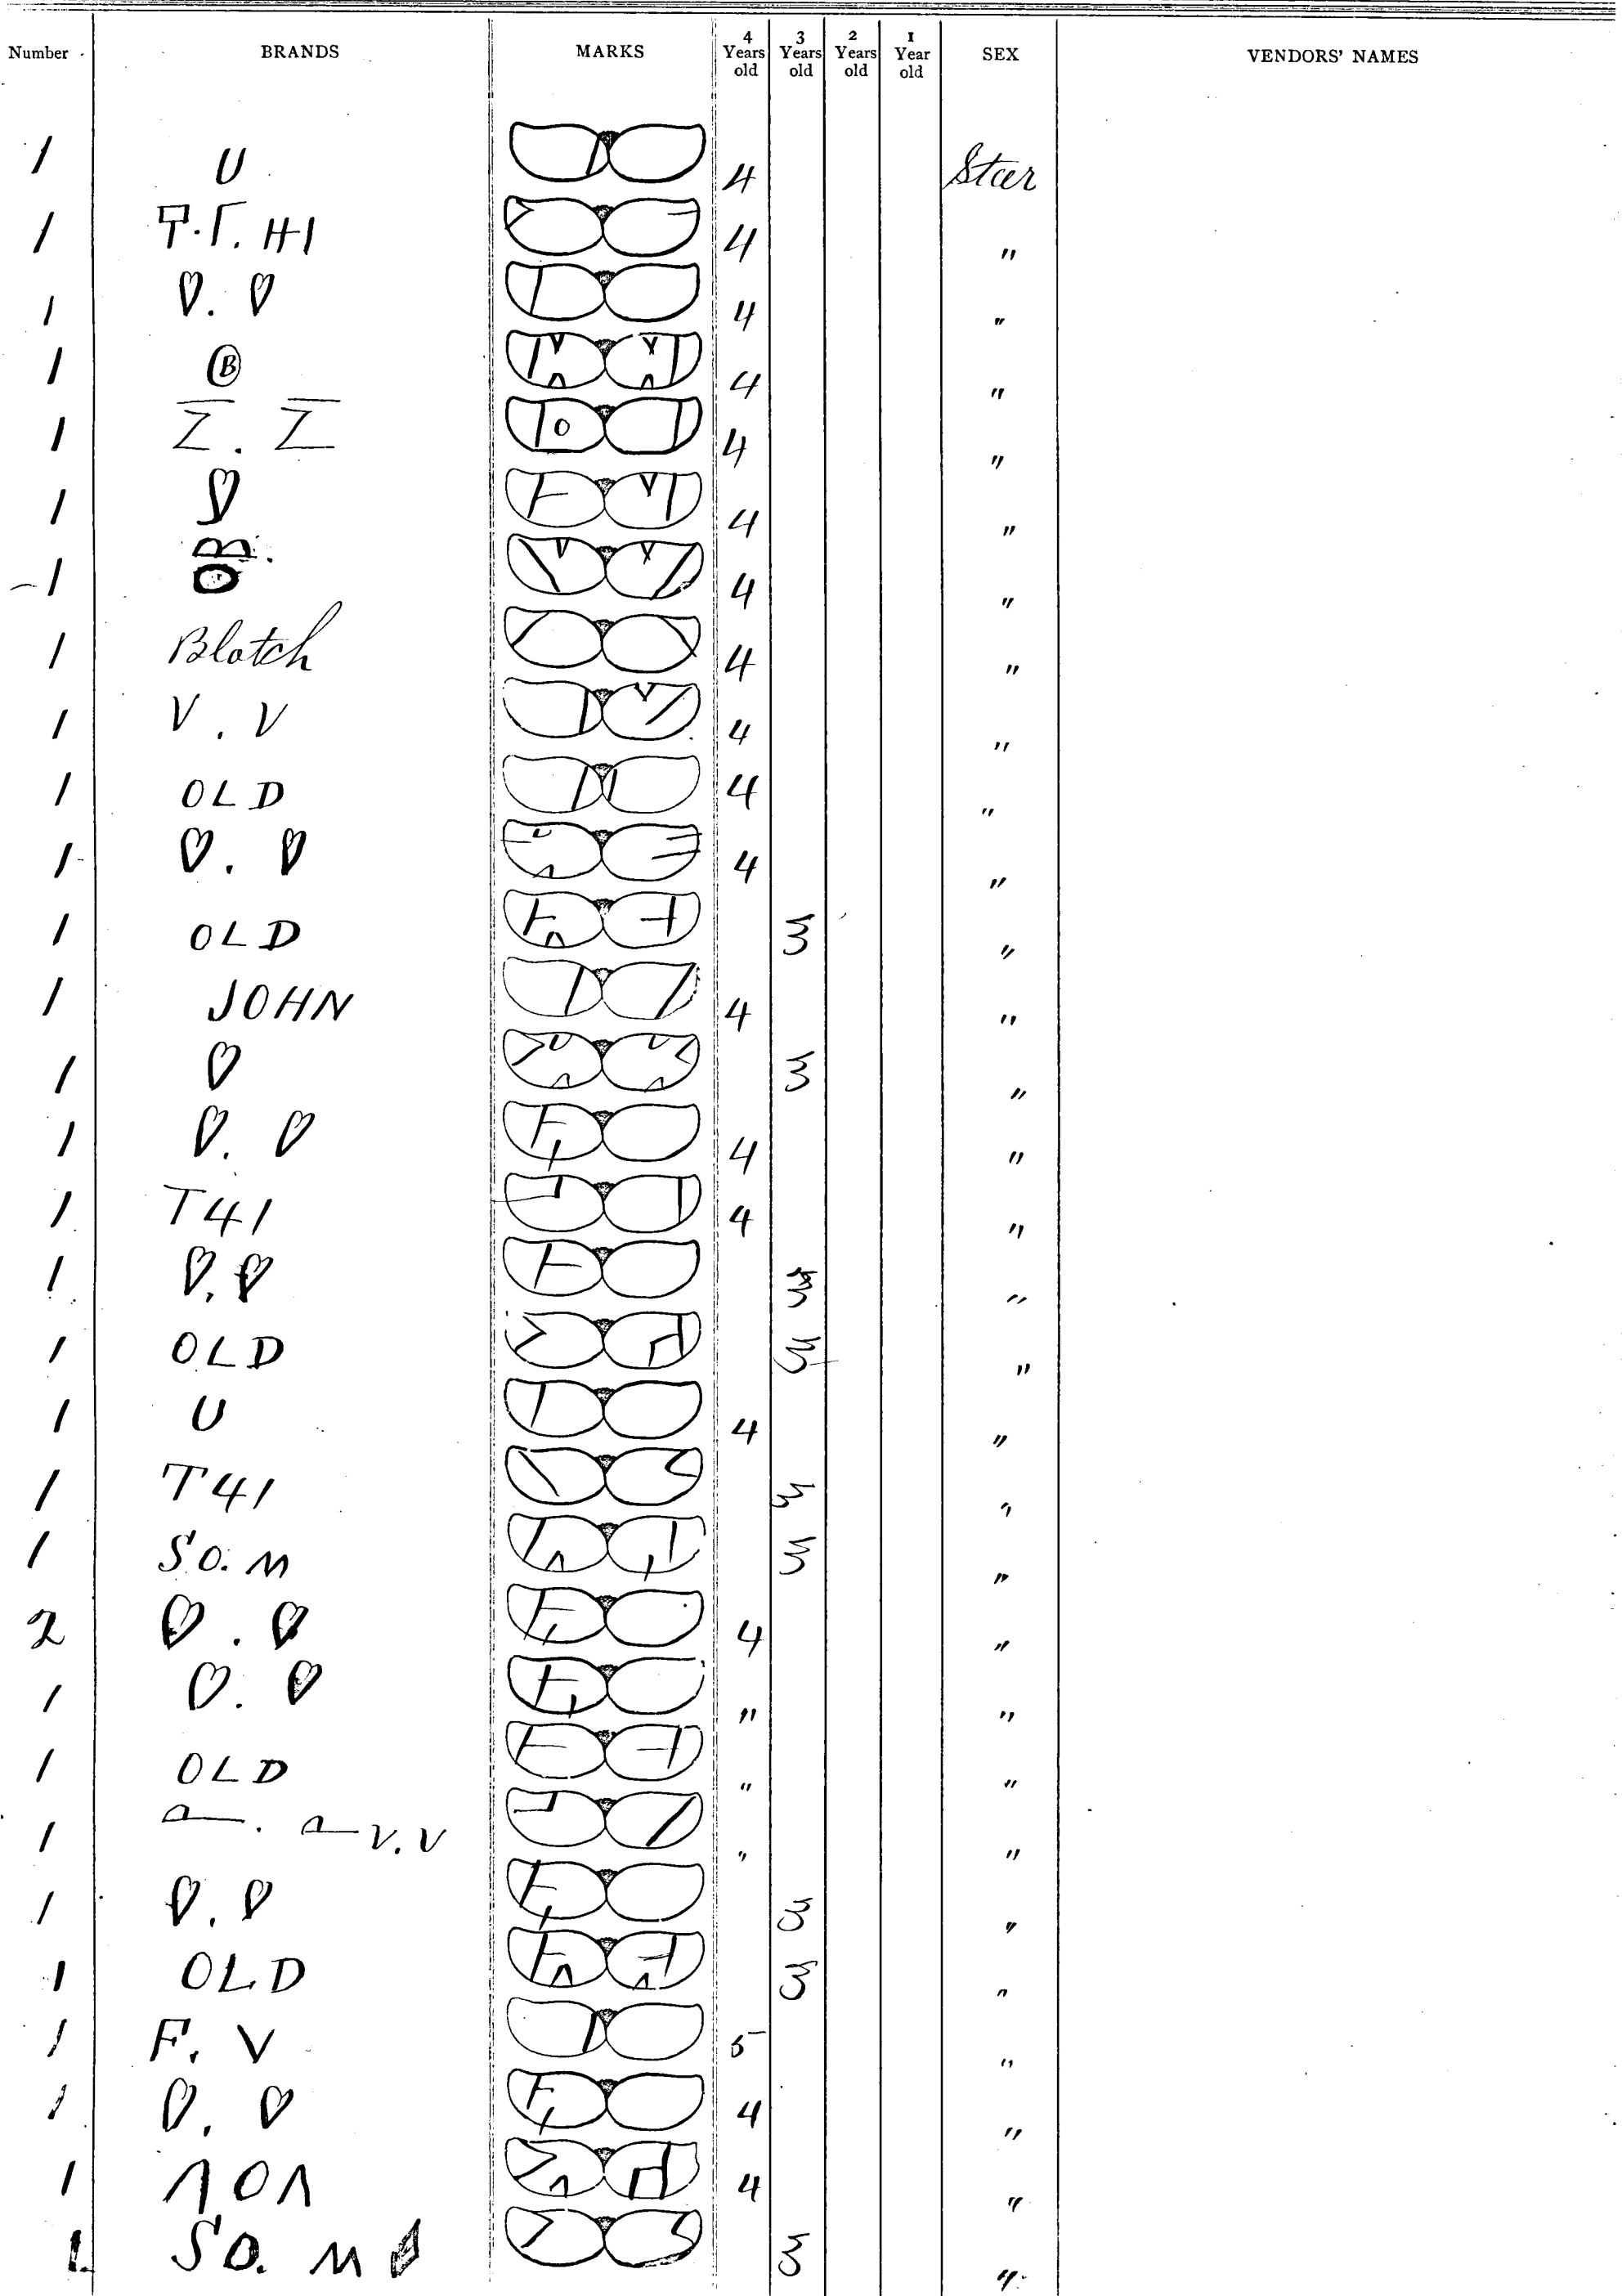 Number BRANDS MARKS 4 Years old 3 Years old 2 Years old 1 Year old SEX VENDORS' NAMES
1 U 4 Stær
1 4 "
1 ♡. ♡ 4 "
1 Ⓑ 4 "
1 Z̅ . Z̅ 4 "
1 ♡ 4 "
1 4 "
1 Blotch 4 "
1 V . V 4 "
1 OLD 4 "
1 ♡. ♡ 4 "
1 OLD 3 "
1 JOHN 4 "
1 ♡ 3 "
1 ♡. ♡ 4 "
1 T41 4 "
1 ♡. ♡ 3 "
1 OLD 3 "
1 U 4 "
1 T41 3 "
1 SO. M 3 "
2 ♡ . ♡ 4 "
1 ♡. ♡ " "
1 OLD " "
1 V. V " "
1 ♡. ♡ 3 "
1 OLD 3 "
1 F. V 5 "
1 ♡. ♡ 4 "
1 ΛOΛ 4 "
1. SO. M 3 "